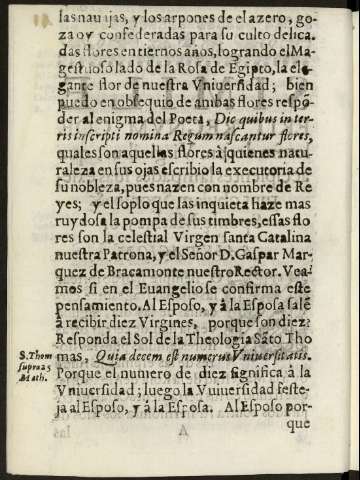 las nauajas, y los arpones de el azero, go-
za oy confederadas para su culto delica-
das flores en tiernos años, logrando el Ma-
gestuoso lado de la Rosa de Egipto, la ele-
gante flor de nuestra Vniuersidad; bien
puedo en obsequio de ambas flores respõ-
der al enigma del Poeta, Dic quibus in ter-
ris inscripti nomina Regum nascantur flores,
quales son aquellas flores à quienes natu-
raleza en sus ojas escribio la executoria de
su nobleza, pues nazen con nombre de Re-
yes; y el soplo que las inquieta haze mas
ruydosa la pompa de sus timbres, essas flo-
res son la celestial Virgen santa Catalina
nuestra Patrona, y el Señor D. Gaspar Mar-
quez de Bracamonte nuestro Rector. Vea-
mos si en el Euangelio se confirma este
pensamiento. Al Esposo, y à la Esposa salẽ
à recibir diez Virgines, porque son diez?
Responda el Sol de la Theologia Sãto Tho
S. Thom
supra 25
Math.
mas, Quia decem est numerus Vniuersitatis.
Porque el numero de diez significa à la
Vniuersidad; luego la Vniuersidad feste-
ja al Esposo, y à la Esposa. Al Esposo por-
que